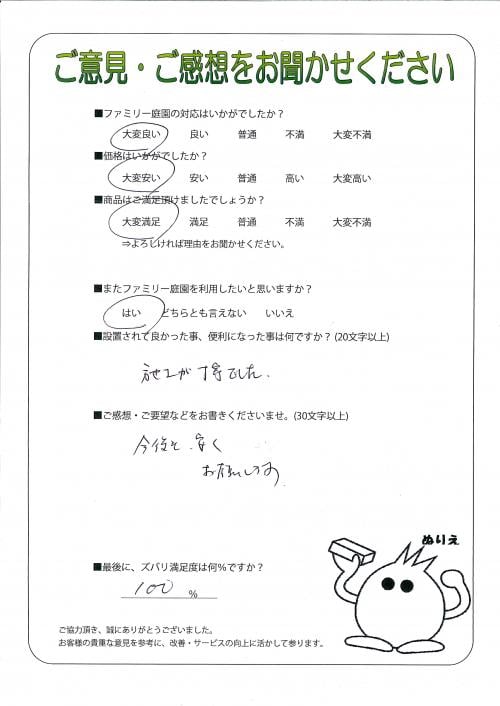 ご意見・ご感想をお聞かせください
■ファミリー庭園の対応はいかがでしたか？
大変良い 良い 普通 不満 大変不満
■価格はいかがでしたか？
大変安い 安い 普通 高い 大変高い
■商品はご満足頂けましたでしょうか？
大変満足 満足 普通 不満 大変不満
⇒よろしければ理由をお聞かせください。
■またファミリー庭園を利用したいと思いますか？
はい どちらとも言えない いいえ
■設置されて良かった事、便利になった事は何ですか？(20文字以上)
施工が 丁寧でした.
■ご感想・ご要望などをお書きくださいませ。(30文字以上)
今後も 安く
お願いします
ぬりえ
■最後に、ズバリ満足度は何％ですか？
100 ％
ご協力頂き、誠にありがとうございました。
お客様の貴重な意見を参考に、改善・サービスの向上に活かして参ります。